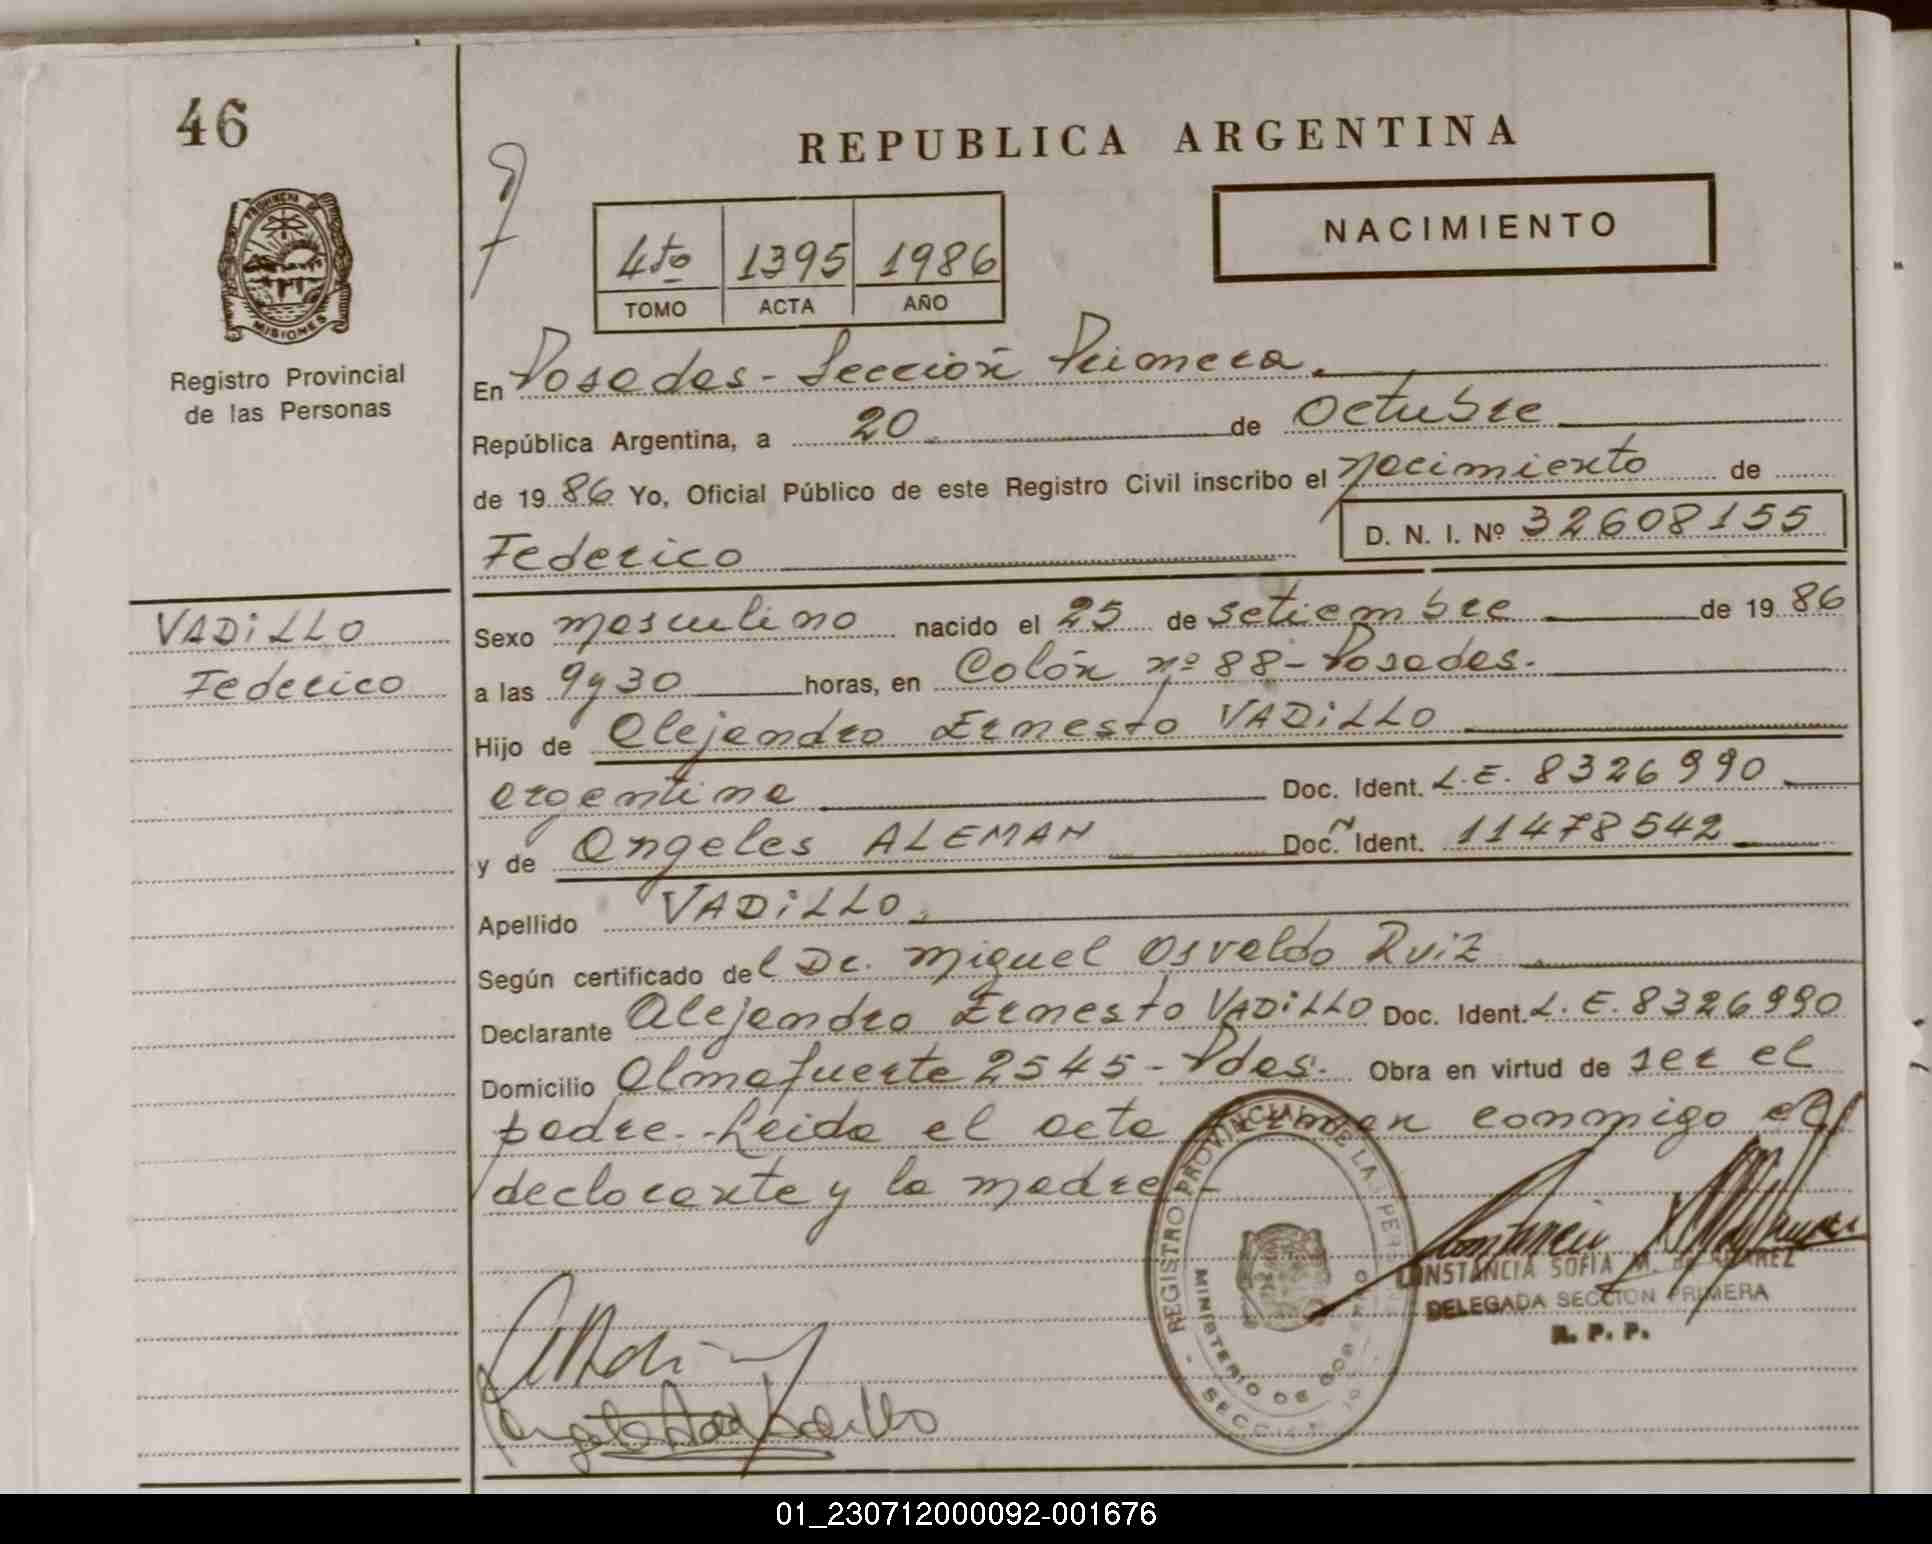 46
REPUBLICA ARGENTINA
NACIMIENTO
4to 1395 1986
TOMO ACTA AÑO
PROVINCIA DE
MISIONES
Registro Provincial
de las Personas
En Posadas - Sección Primera.
República Argentina, a 20 de Octubre
de 19 86 Yo, Oficial Público de este Registro Civil inscribo el nacimiento de
D. N. I. Nº 32608155
Federico
VADiLLO
Federico
Sexo masculino nacido el 25 de setiembre de 19 86
a las 9 y 30 horas, en Colón nº 88 - Posadas.
Hijo de Alejandro Ernesto VADiLLO
argentina Doc. Ident. L.E. 8326990
y de Angeles ALEMAÑ Doc. Ident. 11478542
Apellido VADiLLO.
Según certificado del Dr. Miguel Osvaldo Ruiz
Declarante Alejandro Ernesto VADiLLO Doc. Ident. L.E. 8326990
Domicilio Almafuerte 2545 - Pdas. Obra en virtud de ser el
padre.- Leida el acta firman conmigo el
declarante y la madre.-
REGISTRO PROVINCIAL DE LAS PERSONAS
MINISTERIO DE GOBIERNO
SECCION
CONSTANCIA SOFIA M. de ALVAREZ
DELEGADA SECCION PRIMERA
R. P. P.
01_230712000092-001676